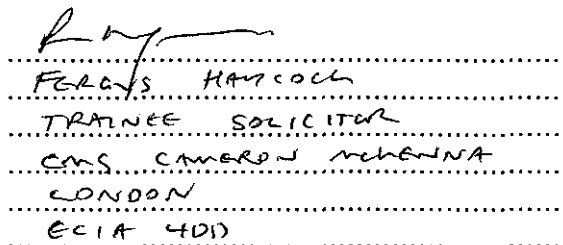 FERGUS HAYCOCK
TRAINEE SOLICITOR
CMS CAMERON MCKENNA
LONDON
EC1A 4DD